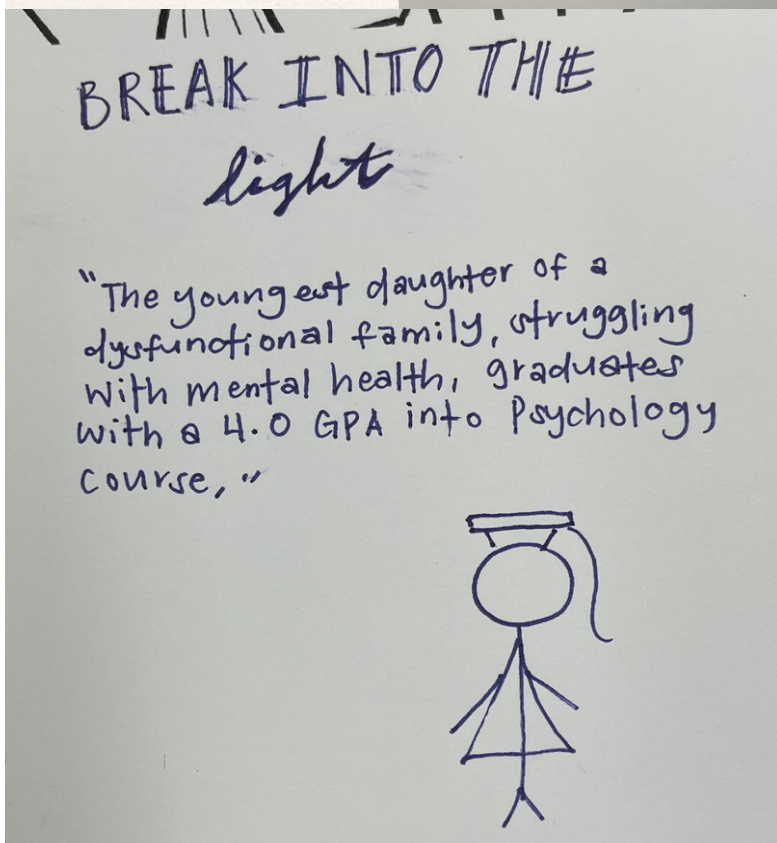 BREAK INTO THE
light
"The youngest daughter of a
dysfunctional family, struggling
with mental health, graduates
with a 4.0 GPA into Psychology
course,"